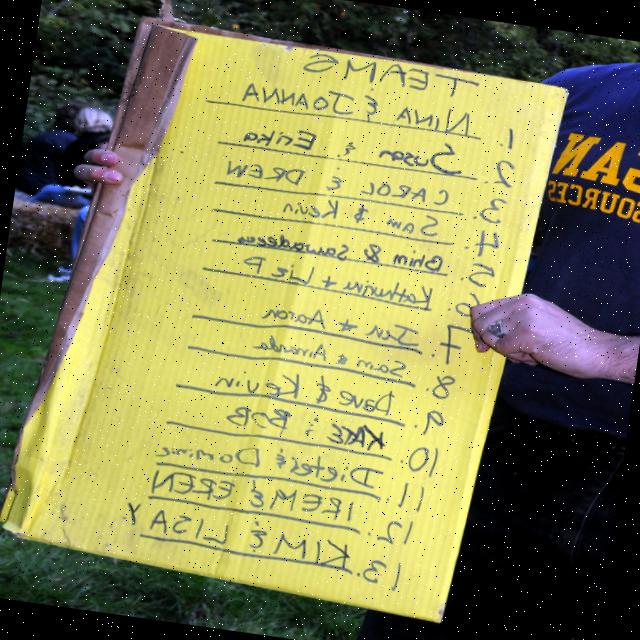 TEAMS
1 NINA & JOANNA
2. Susan & Erika
3. CAROL & DREW
4. SAM & Kevin
5 &
6 + Liz P
7. Ian + Aaron
8. Sam & Amanda
9. Dave & Kevin
10 KATE & BOB
11 Dieter & Dominic
12. IREM & EREN
13. KIM & LISA Y
OURCES